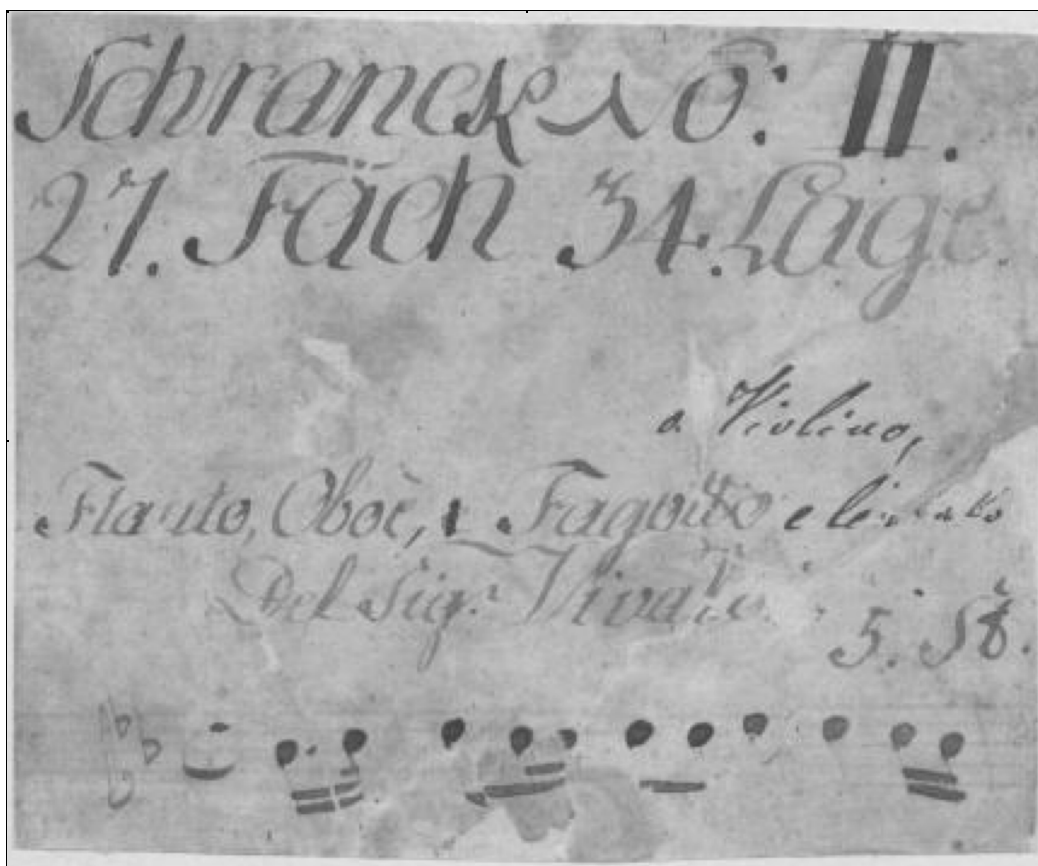 Schranck No: II.
27. Fach 34. Lage.
a Violino,
Flauto, Oboe, Fagotto e
Del Sig.r Vivaldi.
5. St.